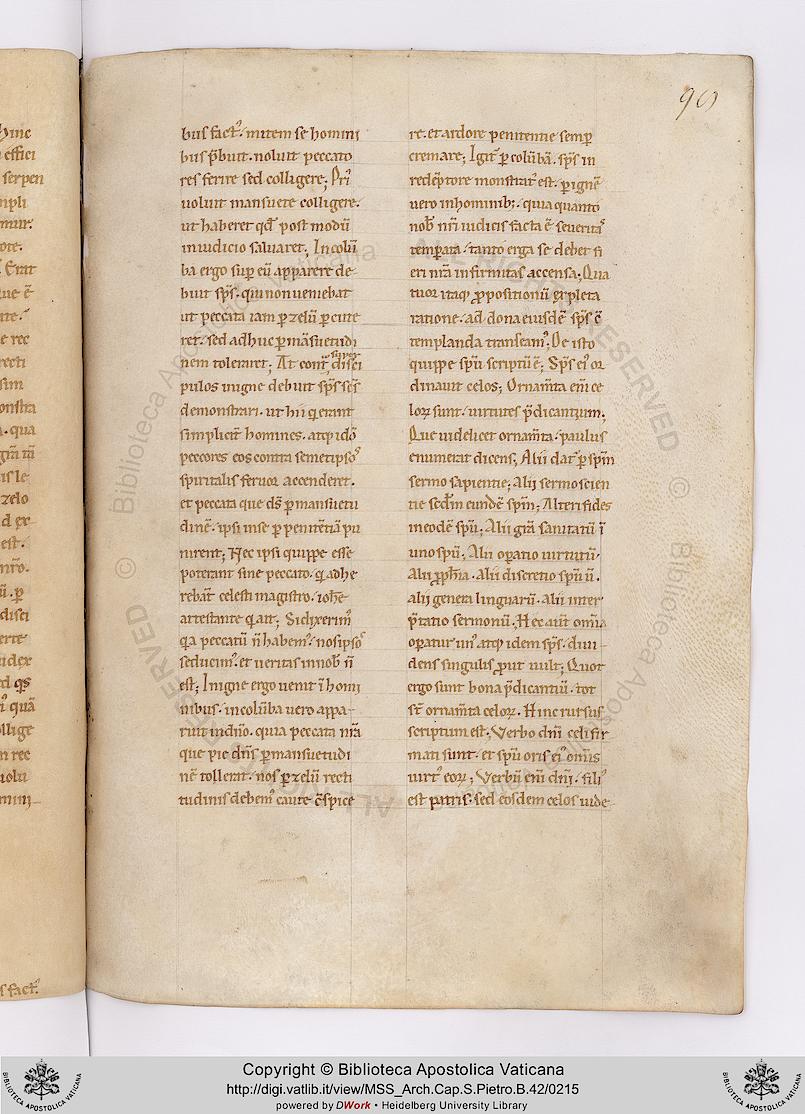 90
bus fact᾿. mitem se homini
bus p̄buit. noluit peccato
res ferire sed colligere; Pri᾿
uoluit mansuete colligere.
ut haberet qđ post modū
in iudicio saluaret; In colū
ba ergo sup̄ eū apparere de
buit sp̄s. qui non ueniebat
ut peccata iam ꝑ zelū ꝑcute
ret. sed adhuc ꝑ mansuetudi
nem toleraret; At cont᷑ super disci
pulos in igne debuit sp̄s sc̄s
demonstrari. ut hii q̇ erant
simplicit᷑ homines. atq; idō
peccores eos contra semetipso᾿
spiritalis feruor accenderet.
et peccata que dš ꝑ mansuetu
dinē. ipsi in se ꝑ penitētiā pu
nirent; Nec ipsi quippe esse
poterant sine peccato. q̇ adhe
rebāt celesti magistro. ioh̄e
attestante q̇ ait; Si dixerim᾿
q̇a peccatū n̄ habem᾿. nosipso᾿
seducim᾿. et ueritas in nob̄ n̄
est; In igne ergo uenit ī homi
nibus. in colūba uero appa
ruit in dn̄o. quia peccata nr̄a
que pie dn̄s ꝑ mansuetudi
nē tollerat. nos ꝑ zelū recti
tudinis debem᾿ caute c̄spice
re. et ardore penitentie semꝑ
cremare; Igit᷑ ꝑ colūbā. sp̄s in
redēptore monstrat᾿ est. ꝑ ignē
uero in hominib;. quia quanto
nob̄ nr̄i iudicis facta ē seuerita᾿
temperata. tanto erga se debet fi
eri nr̄a infirmitas accensa; Qua
tuor itaq; ꝓpositionū expleta
ratione. ad dona eiusdē sp̄s c̄
templanda transeam᾿; De isto
quippe sp̄u scriptū ē; Sp̄s ei᾿ or
dinauit celos; Ornam̄ta eni᷑ ce
loꝝ sunt. uirtutes p̄dicantium;
Que uidelicet ornam̄ta. paulus
enumerat dicens; Alii dat᷑ ꝑ sp̄m
sermo sapientie; Alij sermo scien
tie sed̄m eundē sp̄m; Alteri fides
in eodē sp̄u; Alii gr̄a sanitatū ī
uno sp̄u; Alii oꝑatio uirtutū.
Alii ꝓph̄ia. Alii discretio sp̄u ū.
alii genera linguarū. alii inter
p̄tatio sermonū. Hec aūt om̄ia
oꝑatur un᾿ atq; idem sp̄s. diui
dens singulis ꝓut uult; Quot
ergo sunt bona p̄dicantiū. tot
st̄ ornam̄ta celoꝝ. Hinc rursus
scriptum est; Verbo dn̄i celi fir
mati sunt. et sp̄u oris ei᾿ om̄is
uirt᾿ eoꝝ; Verbū eni᷑ dn̄i. fili᾿
est patris. sed eosdem celos uide
Copyright © Biblioteca Apostolica Vaticana
http://digi.vatlib.it/view/MSS_Arch.Cap.S.Pietro.B.42/0215
powered by DWork • Heidelberg University Library